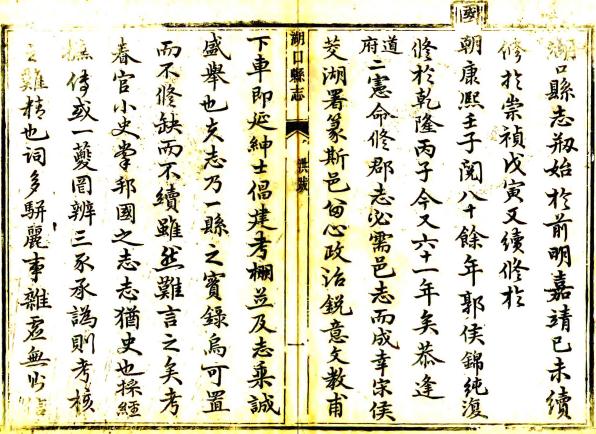 湖口縣志剏始於前明嘉靖己未續
修於崇禎戊寅又續修於
朝康熙壬子閱八十餘年郭侯錦純復
修於乾隆丙子今又六十一年矣恭逢
道府二憲命修郡志必需邑志而成幸宋侯
茭湖署篆斯邑留心政治銳意文教甫
湖口縣志
洪跋
一
下車即延紳士倡建考棚並及志乘誠
盛舉也夫志乃一縣之實錄烏可置
而不修缺而不續雖然難言之矣考
春官小史掌邦國之志志猶史也採經
摭傳或一夔罔辨三豕承譌則考核
之難精也詞多駢麗事雜虛無